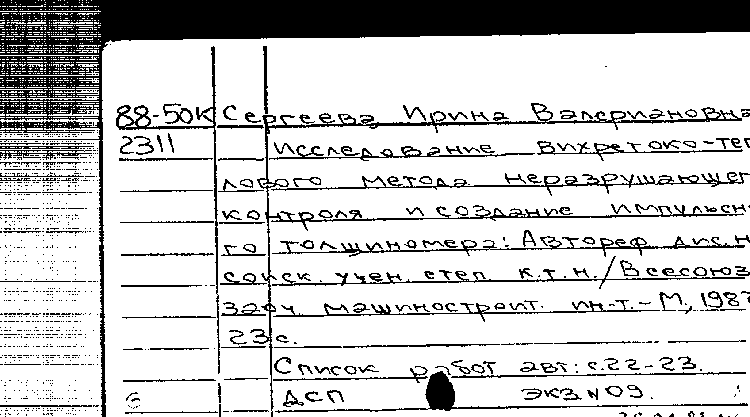 88-50К Сергеева Ирина Валериановна
2311 Исследование вихретоко-теп
лового метода неразрушающег
контроля и создание импульсн
го толщиномера: Автореф дис. н
соиск. учен. степ. к.т.н. / Всесоюз
заоч. машиностроит. ин-т. - М, 1987
23 с.
Список работ авт: с. 22-23.
6 ДСП экз N 09.